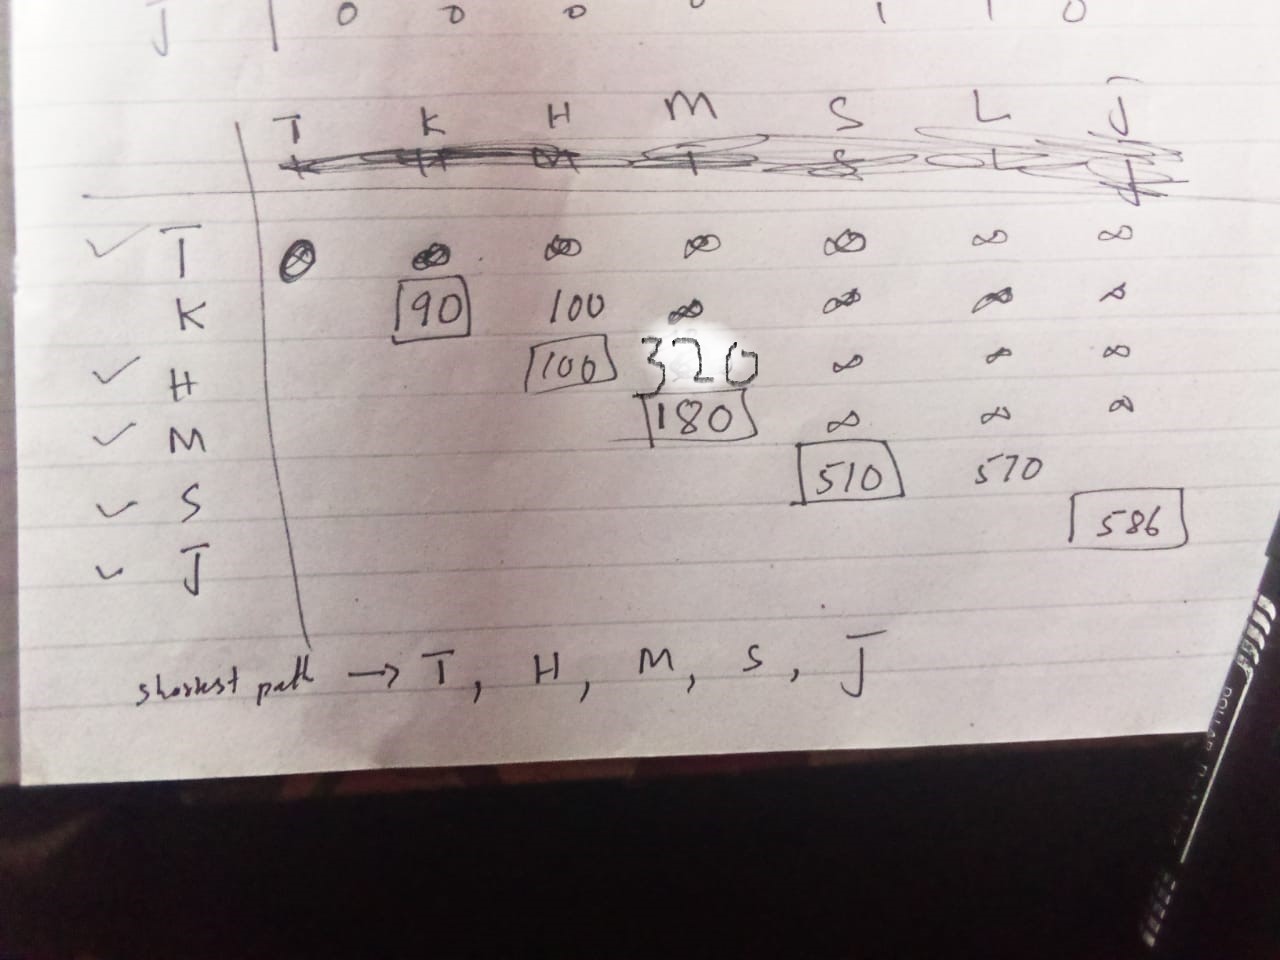 J 0 0 0 0 1 1 0
T K H M S L J
T ∞ ∞ ∞ ∞ ∞ ∞
K 90 100 ∞ ∞ ∞ ∞
H 100 320 ∞ ∞ ∞
M 180 ∞ ∞ ∞
S 510 570
J 586
shortest path → T, H, M, S, J